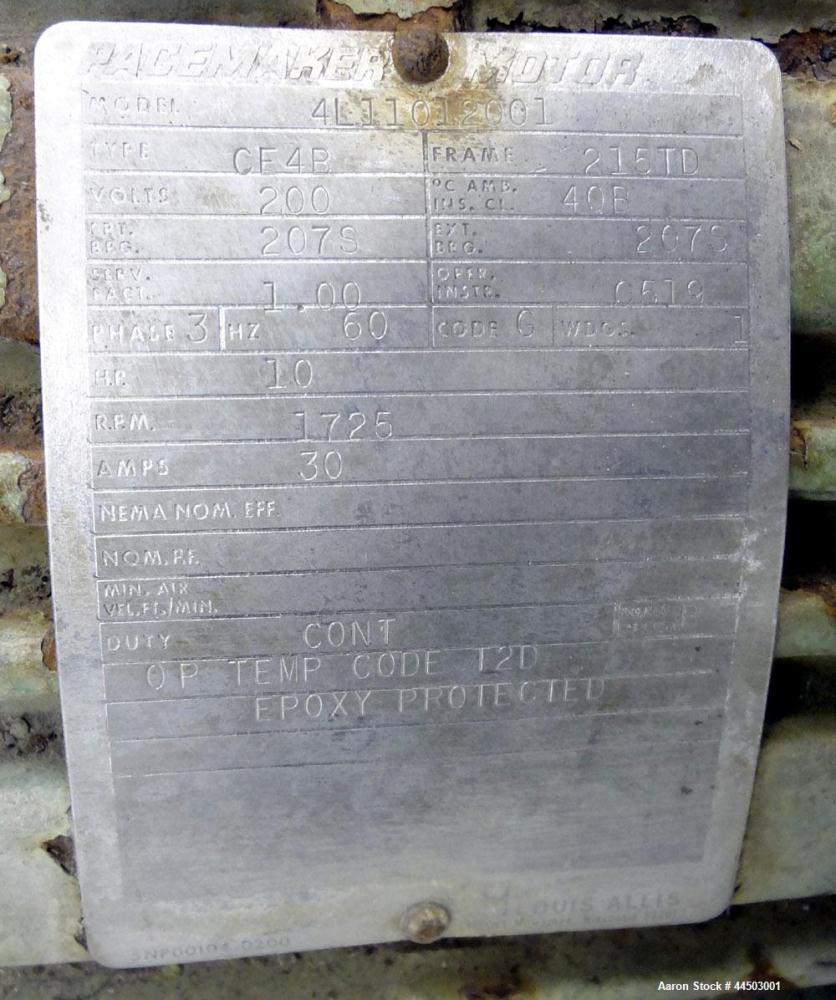 PACEMAKER MOTOR
MODEL 4L11012001
TYPE CF4B FRAME 215TD
VOLTS 200 °C AMB. INS. CL. 40B
FRT. BRG. 207S EXT. BRG. 207S
SERV. FACT. 1.00 OPER. INSTR. C519
PHASE 3 HZ 60 CODE G WDGS. 1
H.P. 10
R.P.M. 1725
AMPS 30
NEMA NOM. EFF.
NOM. P.F.
MIN. AIR
VEL. FT./MIN.
DUTY CONT
OP TEMP CODE T2D
EPOXY PROTECTED
LOUIS ALLIS
5NP00104-0200
Aaron Stock # 44503001